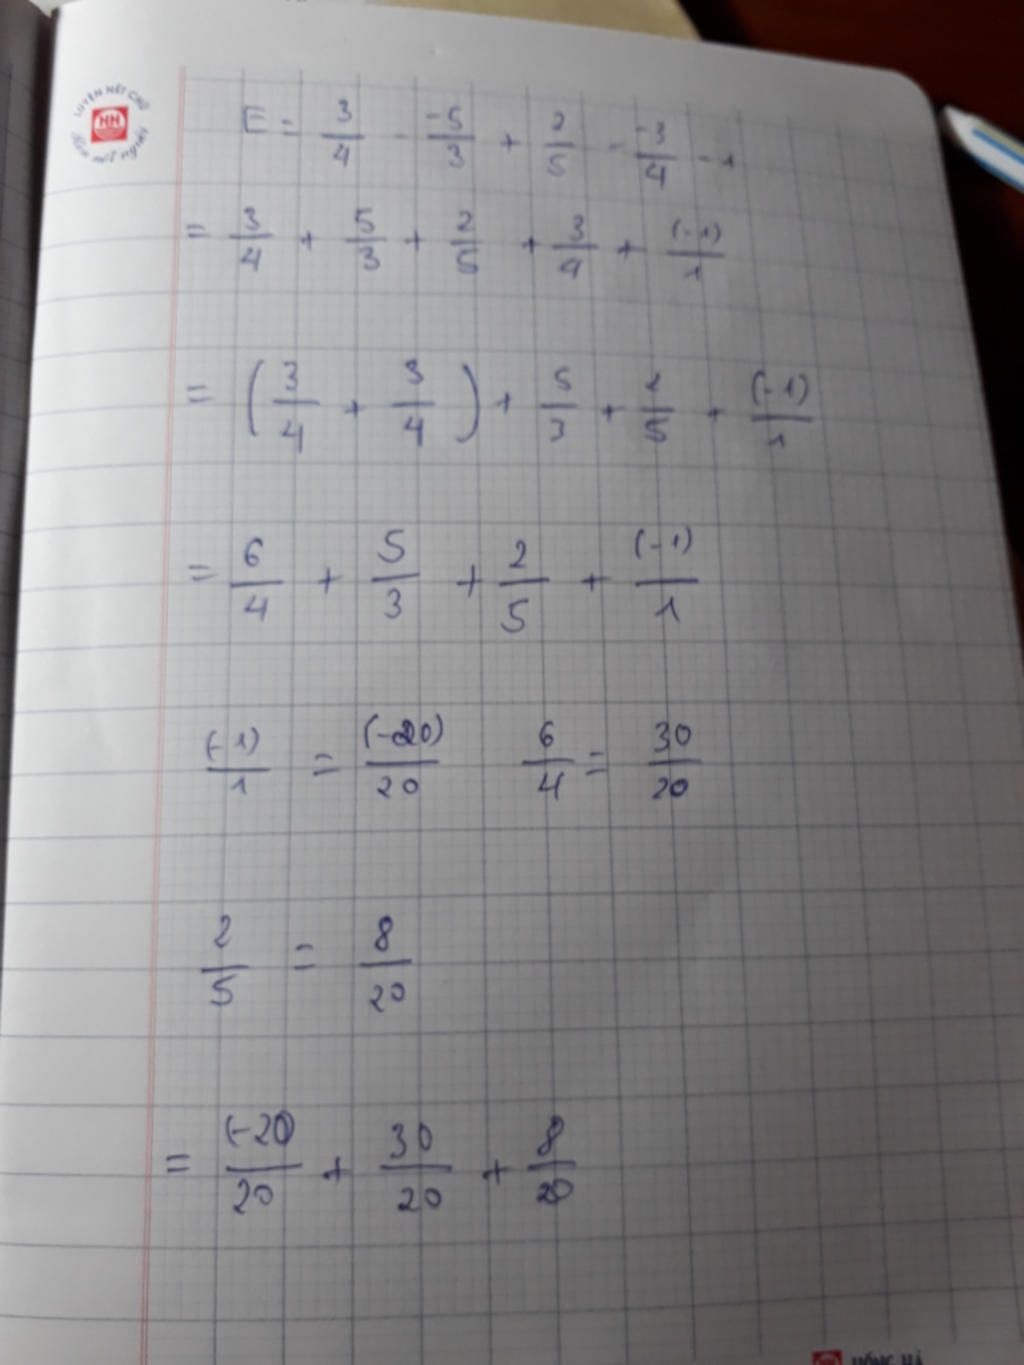 LUYỆN NẾT CHỮ
HH
Rèn nết người
E = 3/4 - -5/3 + 2/5 - -3/4 - 1
= 3/4 + 5/3 + 2/5 + 3/4 + (-1)/1
= (3/4 + 3/4) + 5/3 + 2/5 + (-1)/1
= 6/4 + 5/3 + 2/5 + (-1)/1
(-1)/1 = (-20)/20 6/4 = 30/20
2/5 = 8/20
= (-20)/20 + 30/20 + 8/20
HỒNG HÀ